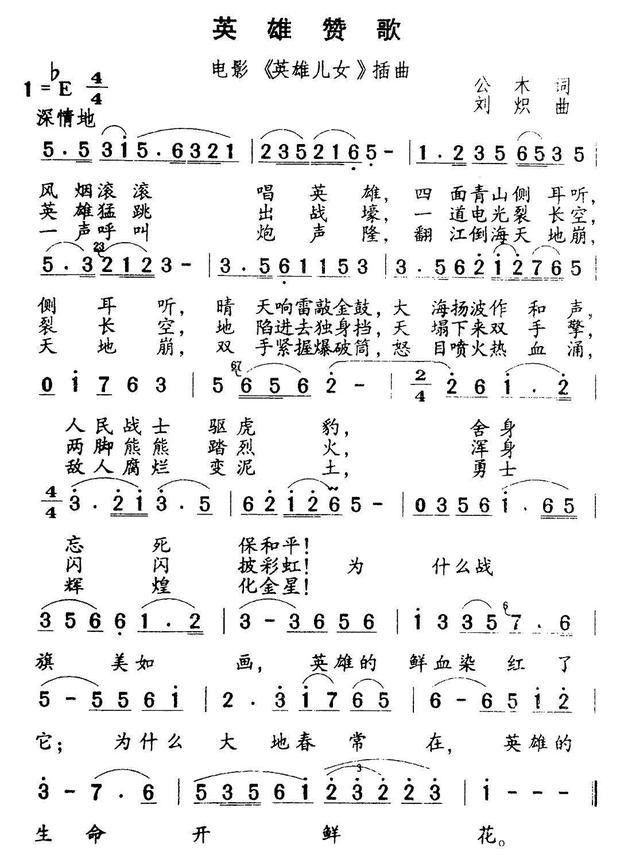 英雄赞歌
电影《英雄儿女》插曲
1=♭E 4/4
公木 词
刘炽 曲
深情地
5.5 3i 5.6321 | 2352165- | 1.2 35 6535 |
风烟滚滚 唱英雄,四面青山侧耳听,
英雄猛跳 出战壕,一道电光裂长空,
一声呼叫 炮声隆,翻江倒海天地崩,
5.3 2123- | 3.561153- | 3.56212765 |
侧耳听,晴天响雷敲金鼓,大海扬波作和声,
裂长空,地陷进去独身挡,天塌下来双手擎,
天地崩,双手紧握爆破筒,怒目喷火热血涌,
0 1 7 6 3 | 5 6 5 6 2- | 2/4 2 6 1.2 |
人民战士驱虎豹,舍身
两脚熊熊踏烈火,浑身
敌人腐烂变泥土,勇士
4/4 3.2 i 3.5 | 6 2 i 2 6 5- | 0 3 5 6 i.6 5 |
忘死保和平!
闪闪披彩虹!为什么战
辉煌化金星!
3 5 6 6 1.2 | 3-3 6 5 6 | 1 3 3 5 7.6 |
旗美如画,英雄的鲜血染红了
5-5 5 6 i | 2.3 i 7 6 5 | 6-6 5 1 2 |
它;为什么大地春常在,英雄的
3-7.6 | 5 3 5 6 i 3 2 3 2 2 3 | i--- ‖
生命开鲜花。